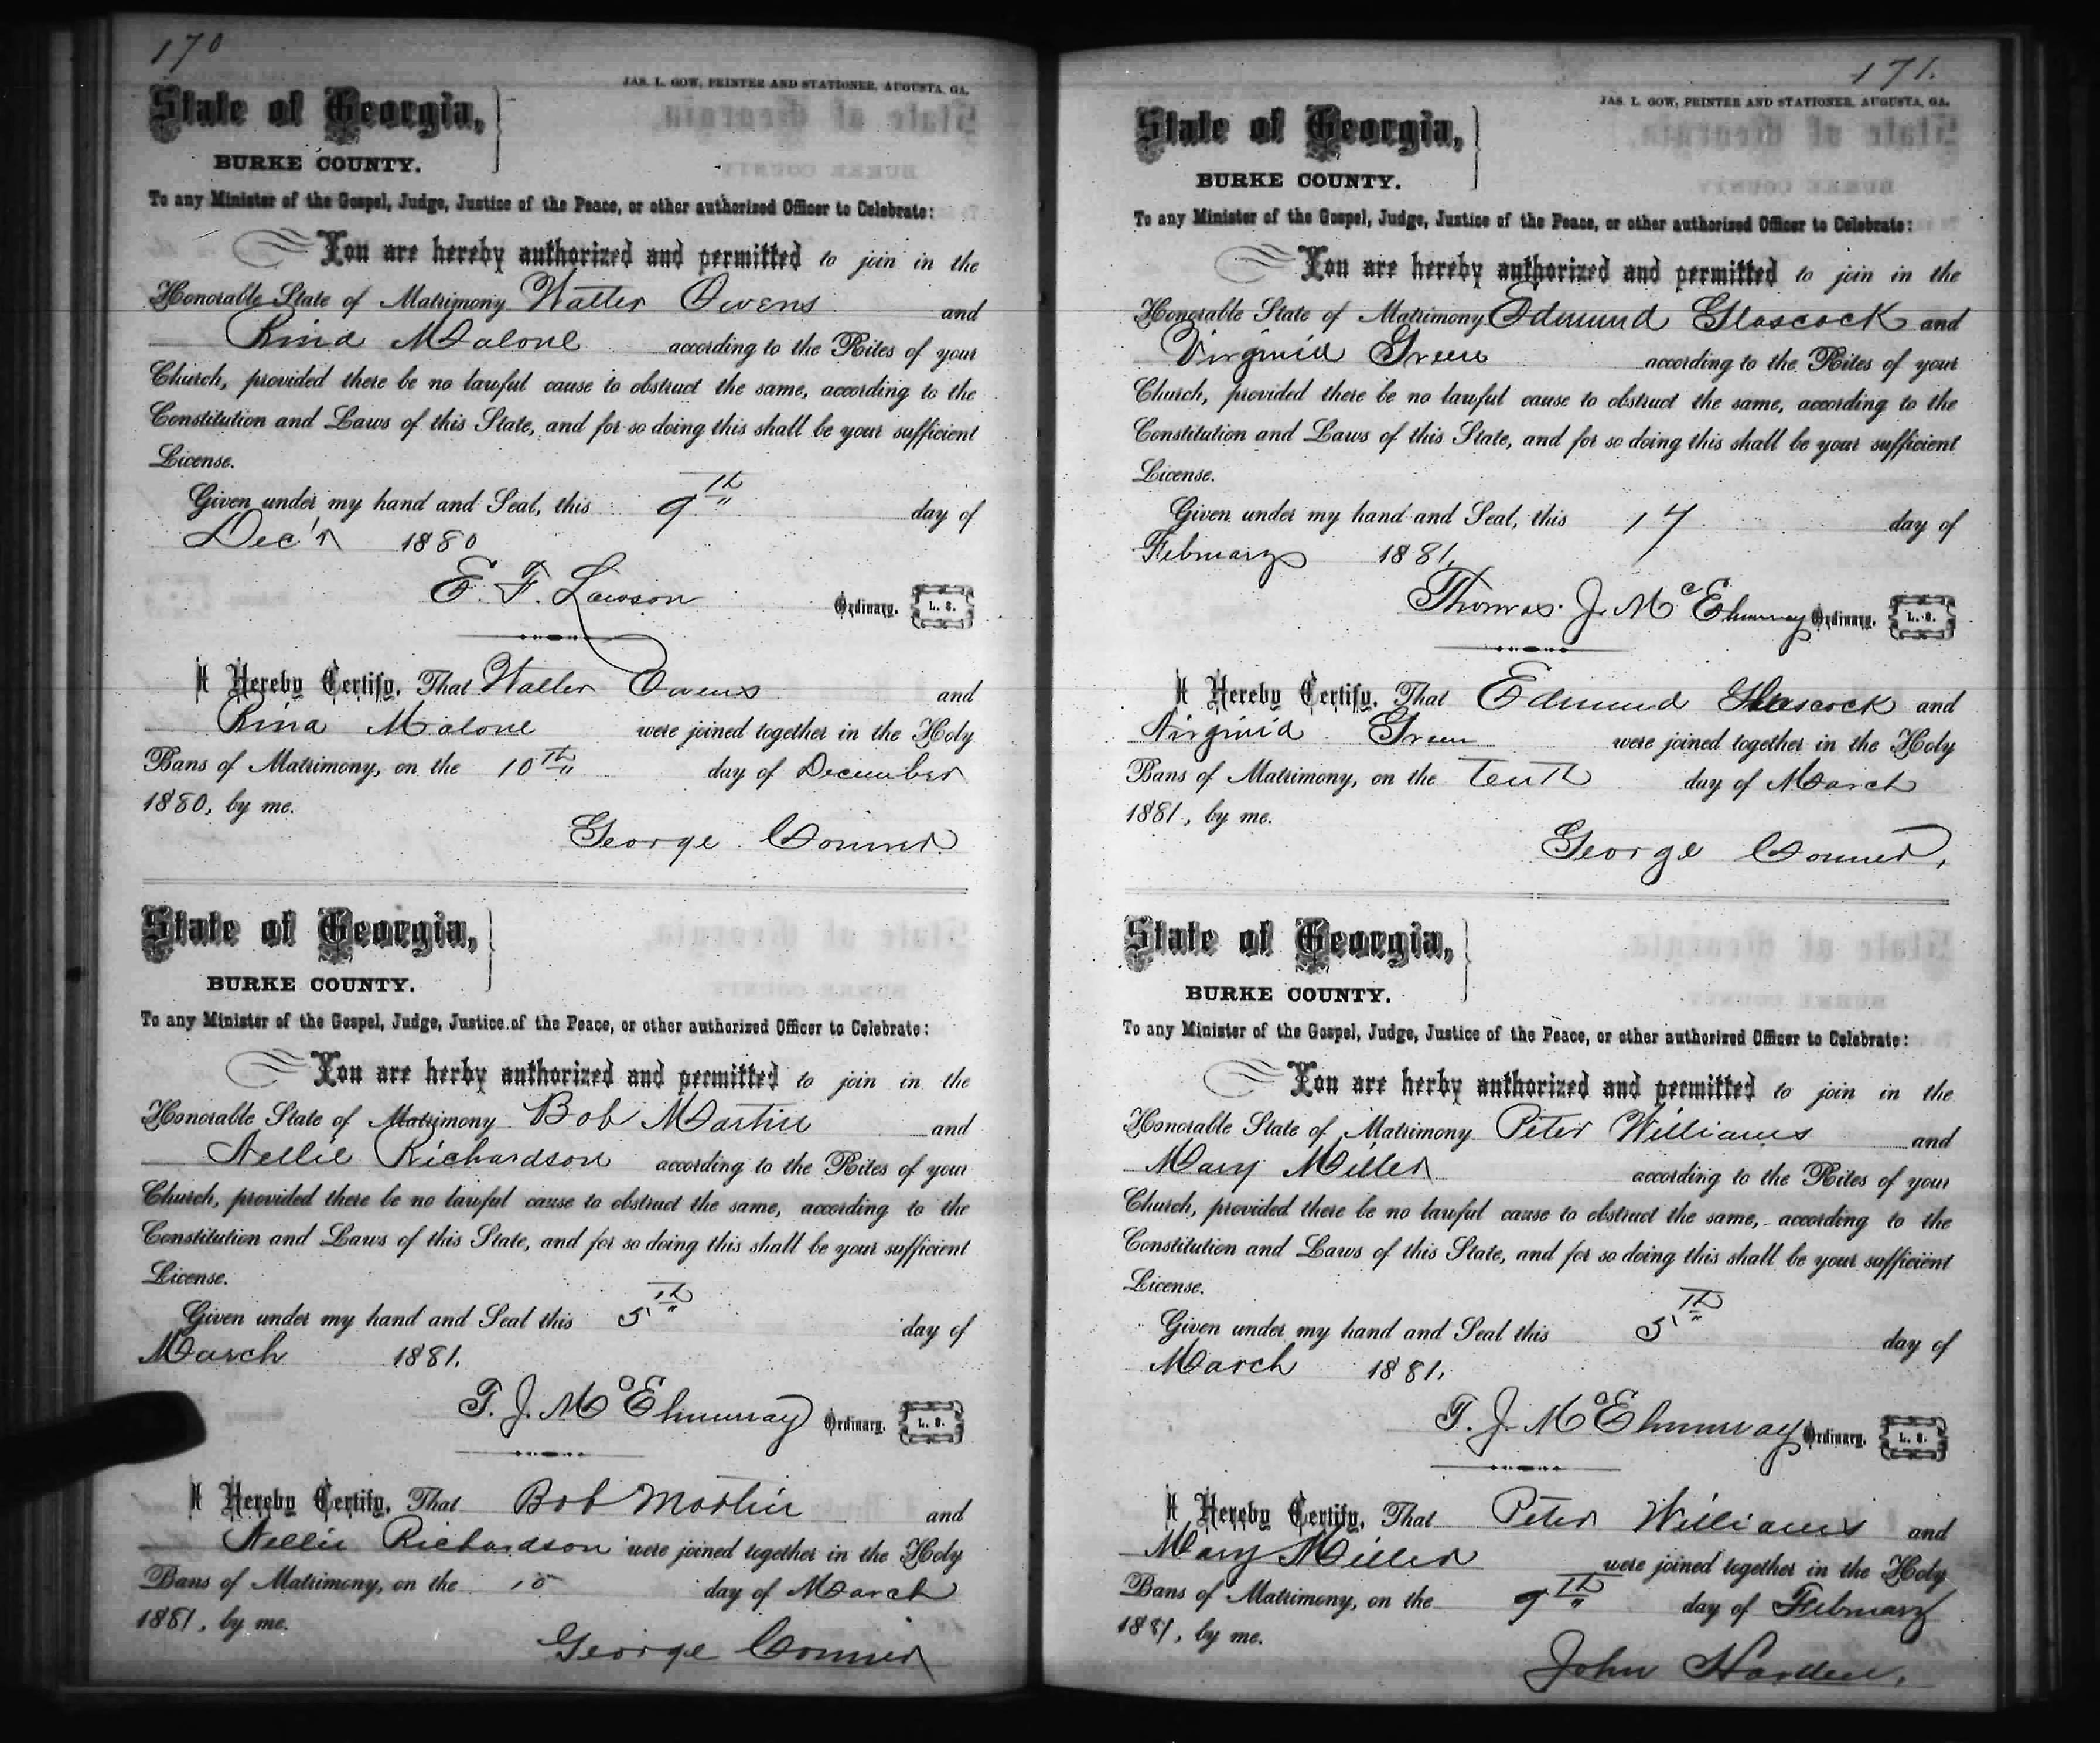 170
JAS. L. GOW, PRINTER AND STATIONER, AUGUSTA, GA.
State of Georgia,
BURKE COUNTY.
To any Minister of the Gospel, Judge, Justice of the Peace, or other authorized Officer to Celebrate:
You are hereby authorized and permitted to join in the
Honorable State of Matrimony Walter Owens and
Rina Malone according to the Rites of your
Church, provided there be no lawful cause to obstruct the same, according to the
Constitution and Laws of this State, and for so doing this shall be your sufficient
License.
Given under my hand and Seal, this 9th day of
Dec'r 1880
E. F. Lawson Ordinary. L. S.
I Hereby Certify, That Walter Owens and
Rina Malone were joined together in the Holy
Bans of Matrimony, on the 10th day of December
1880, by me.
George Conner
State of Georgia,
BURKE COUNTY.
To any Minister of the Gospel, Judge, Justice of the Peace, or other authorized Officer to Celebrate:
You are herby authorized and permitted to join in the
Honorable State of Matrimony Bob Martin and
Nellie Richardson according to the Rites of your
Church, provided there be no lawful cause to obstruct the same, according to the
Constitution and Laws of this State, and for so doing this shall be your sufficient
License.
Given under my hand and Seal this 5th day of
March 1881.
T. J. McElmurray Ordinary. L. S.
I Hereby Certify, That Bob Martin and
Nellie Richardson were joined together in the Holy
Bans of Matrimony, on the 10 day of March
1881, by me.
George Conner
171.
JAS. L. GOW, PRINTER AND STATIONER, AUGUSTA, GA.
State of Georgia,
BURKE COUNTY.
To any Minister of the Gospel, Judge, Justice of the Peace, or other authorized Officer to Celebrate:
You are hereby authorized and permitted to join in the
Honorable State of Matrimony Edmund Glascock and
Virginia Green according to the Rites of your
Church, provided there be no lawful cause to obstruct the same, according to the
Constitution and Laws of this State, and for so doing this shall be your sufficient
License.
Given under my hand and Seal, this 17 day of
February 1881.
Thomas J. McElmurray Ordinary. L. S.
I Hereby Certify, That Edmund Glascock and
Virginia Green were joined together in the Holy
Bans of Matrimony, on the tenth day of March
1881, by me.
George Conner.
State of Georgia,
BURKE COUNTY.
To any Minister of the Gospel, Judge, Justice of the Peace, or other authorized Officer to Celebrate:
You are herby authorized and permitted to join in the
Honorable State of Matrimony Peter Williams and
Mary Miller according to the Rites of your
Church, provided there be no lawful cause to obstruct the same, according to the
Constitution and Laws of this State, and for so doing this shall be your sufficient
License.
Given under my hand and Seal this 5th day of
March 1881.
T. J. McElmurray Ordinary. L. S.
I Hereby Certify, That Peter Williams and
Mary Miller were joined together in the Holy
Bans of Matrimony, on the 9th day of February
1881, by me.
John Harden.